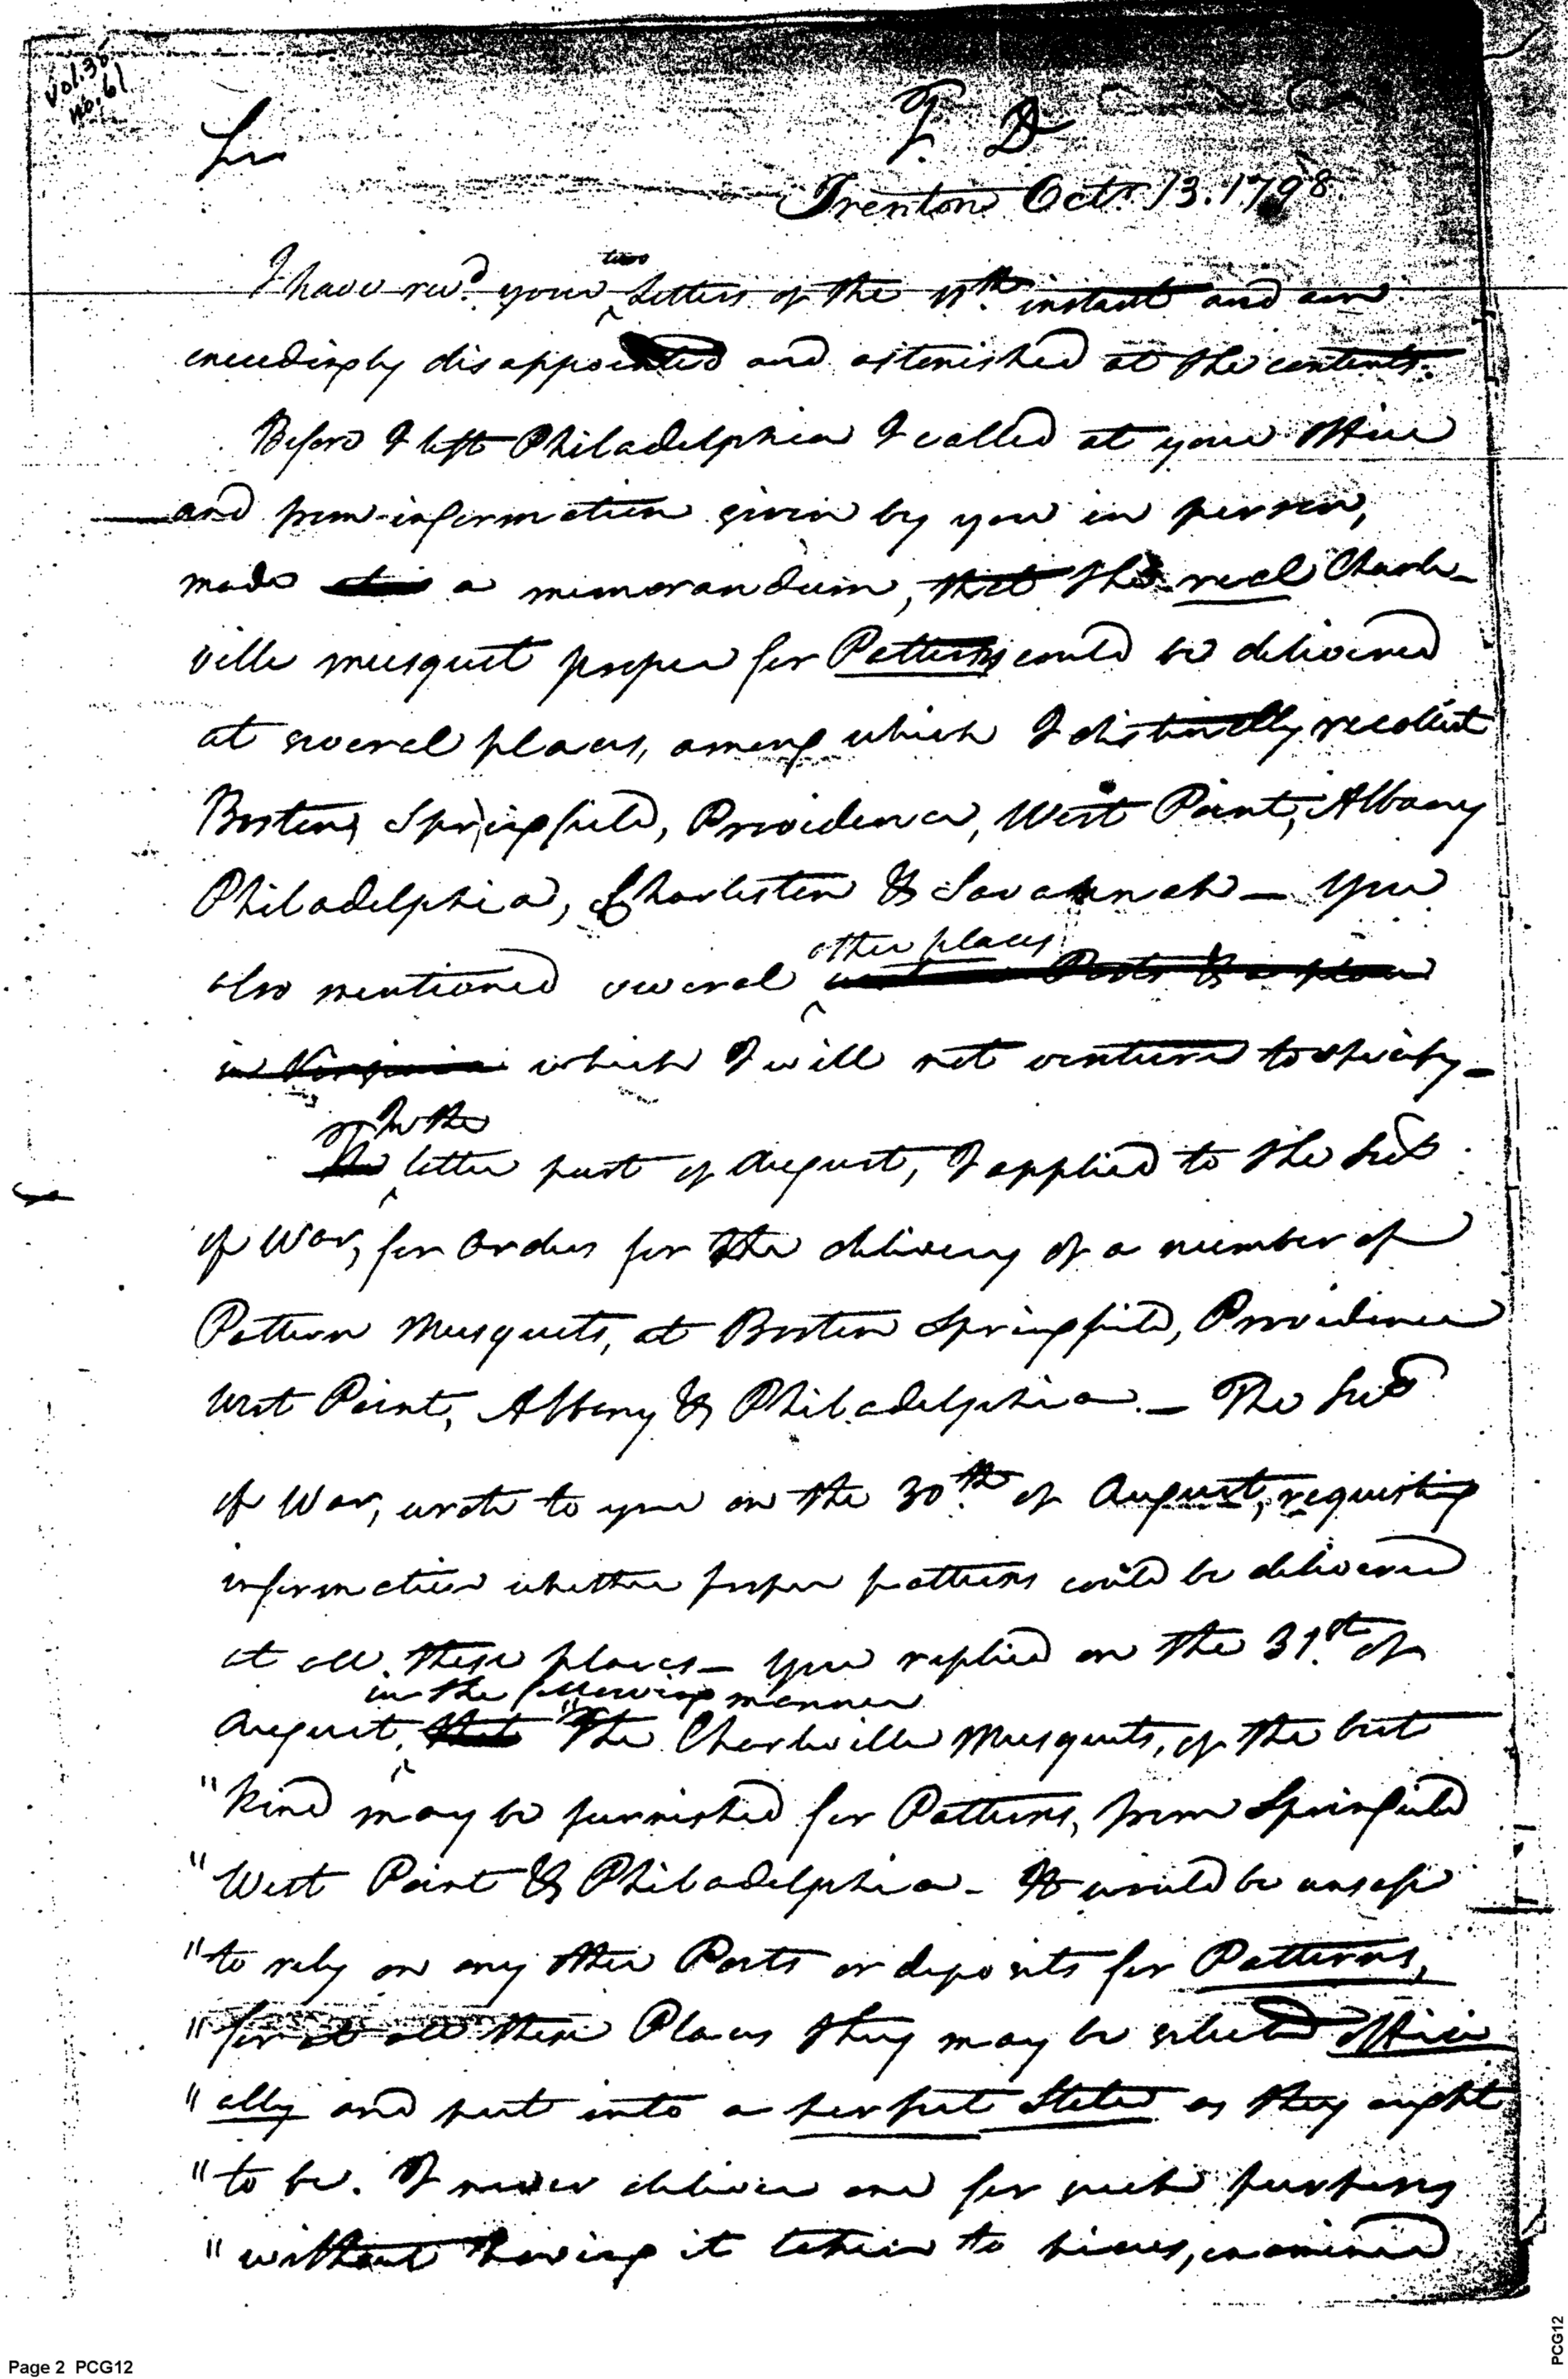 Vol. 38
No. 61
T. D
Sir
Trenton Octr. 13. 1798.
I have recd. your two Letters of the 11th. instant and am
exceedingly disappointed and astonished at the contents.
Before I left Philadelphia I called at your Office
and from information given by you in person,
made a memorandum, that the real Charle-
ville musquet proper for Patterns could be delivered
at several places, among which I distinctly recollect
Boston, Springfield, Providence, West Point, Albany
Philadelphia, Charleston & Savannah — You
also mentioned several other places Posts & a place
in Virginia which I will not venture to specify —
In the latter part of August, I applied to the Secy
of War, for Orders for the delivery of a number of
Pattern Musquets, at Boston Springfield, Providence
West Point, Albany & Philadelphia. — The Secy
of War, wrote to you on the 30th. of August, requesting
information whether proper patterns could be delivered
at all these places — You replied on the 31st. of
August, in the following manner "The Charleville Musquets, of the best
"kind may be furnished for Patterns, from Springfield
"West Point & Philadelphia - It would be unsafe
"to rely on any other Posts or deposits for Patterns,
"for at all these Places they may be selected offici
"ally and put into a perfect State as they ought
"to be. I never deliver one for such purposes
"without having it taken to pieces, examined
Page 2 PCG12
PCG12